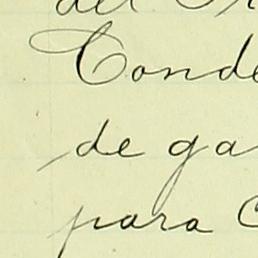 del
Conde
de ga
para C